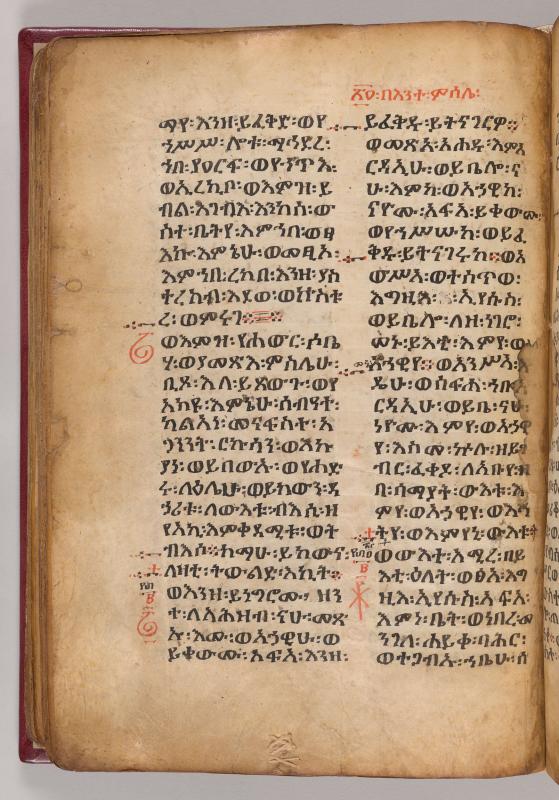 በእንተ፡ምሳሌ፡
ማየ፡እንዘ፡ይፈቅድ፡ወየ
ኀሥሥ፡ሎቱ፡ማኅደረ፡
ኀበ፡ያዐርፍ፡ወየኀጥእ፡
ወኢረኪቦ፡ወእምዝ፡ይ
ብል፡እገብእ፡እንከሰ፡ው
ስተ፡ቤትየ፡እምኀበ፡ወፃ
እኩ፡እምኔሁ፡ወመጺኦ፡
እምኀበ፡ረከበ፡እንዘ፡ያስ
ተረክብ፡
ረ፡ወምሩገ።
ወእምዝ፡የሐውር፡ሶቤ
ሃ፡ወያመጽእ፡ምስሌሁ፡
ቢጾ፡እለ፡ይጸውጉ፡ወየ
አክዩ፡እምኔሁ፡ሰብዓተ፡
ካልአነ፡መናፍስተ፡አ
ጋንንት፡ርኩሳን፡ወእኩ
ያነ፡ወይበውኡ፡ወየሐድ
ሩ፡ላዕሌሁ፡ወይከውን፡ዳ
ኃሪቱ፡ለውእቱ፡ብእሲ፡ዘ
የአኪ፡እምቀዳሚቱ፡ወት
ብእሶ።ከማሁ፡ይከውና፡
ለዛቲ፡ትውልድ፡እኪት።
ወእንዘ፡ይነግሮሙ፡ዝን
ተ፡ለአሕዛብ፡ናሁ፡መጽ
ኡ፡እሙ፡ወአኃዊሁ፡ወ
ይቀውሙ፡አፍአ፡እንዘ፡
ይፈቅዱ፡ይትናገርዎ።
ወመጽአ፡አሐዱ፡እምአ
ርዳኢሁ፡ወይቤሎ፡ና
ሁ፡እምከ፡ወአኃዊከ፡
ናዮሙ፡አፍአ፡ይቀውሙ
ወየኀሥሡከ፡ወይፈ
ቅዱ፡ይትናገሩከ።ወአ
ውሥአ፡ወተሰጥወ፡
እግዚእ፡ኢየሱስ፡
ወይቤሎ፡ለዘ፡ነገሮ፡
መኑ፡ይእቲ፡እምየ፡ወእ
አኃዊየ።ወአንሥአ፡እ
ዴሁ፡ወሰፍሐ፡ኀበ፡አ
ርዳኢሁ፡ወይቤ፡ናሁ፡
ነዮሙ፡እምየ፡ወአኃዊ
የ፡እስመ፡ኵሉ፡ዘይገ
ብር፡ፈቃዶ፡ለአቡየ፡ዘ
በ፡ሰማያት፡ውእቱ፡እ
ምየ፡ወአኃዊየ፡ወእኅ
ትየ፡ወእምየኒ፡ውእቱ።
ወውእተ፡አሚረ፡በይ
እቲ፡ዕለት፡ወፅአ፡እግ
ዚእ፡ኢየሱስ፡አፍአ፡
እምነ፡ቤት፡ወነበረ፡መ
ንገለ፡ሐይቀ፡ባሕር፡
ወተጋብኡ፡ኀቤሁ፡ሰ